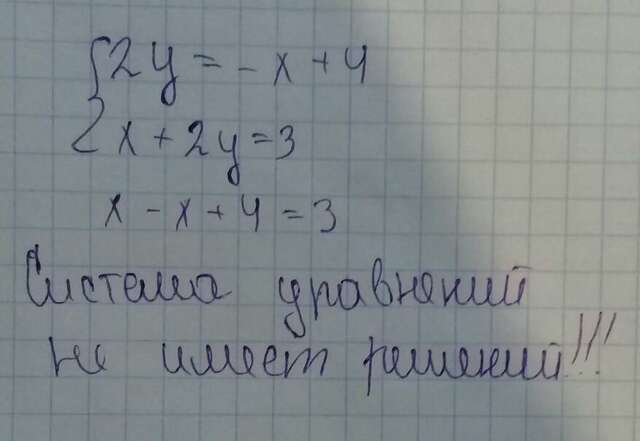 {2y = -x + 4
x + 2y = 3
x - x + 4 = 3
Система уравнений
не имеет решений!!!